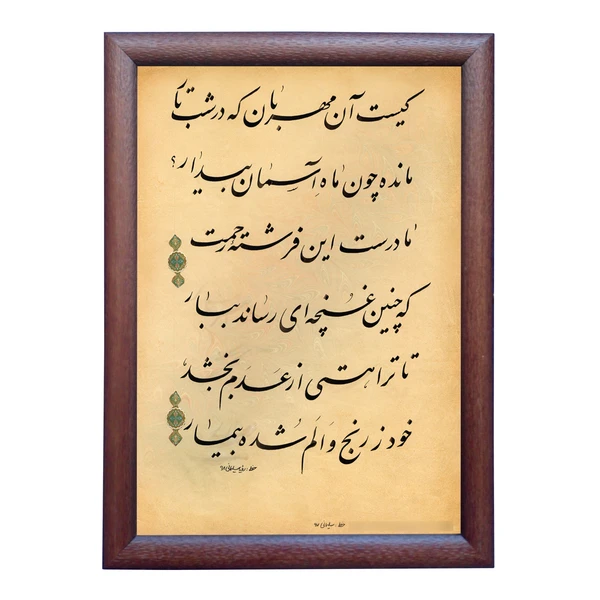 کیست آن مهربان که در شب تار
مانده چون ماه آسمان بیدار؟
مادرست این فرشته رحمت
که چنین غنچه‌ای رساند ببار
تا ترا هستی از عدم بخشد
خود ز رنج و الم شده بیمار
خط:
خط: